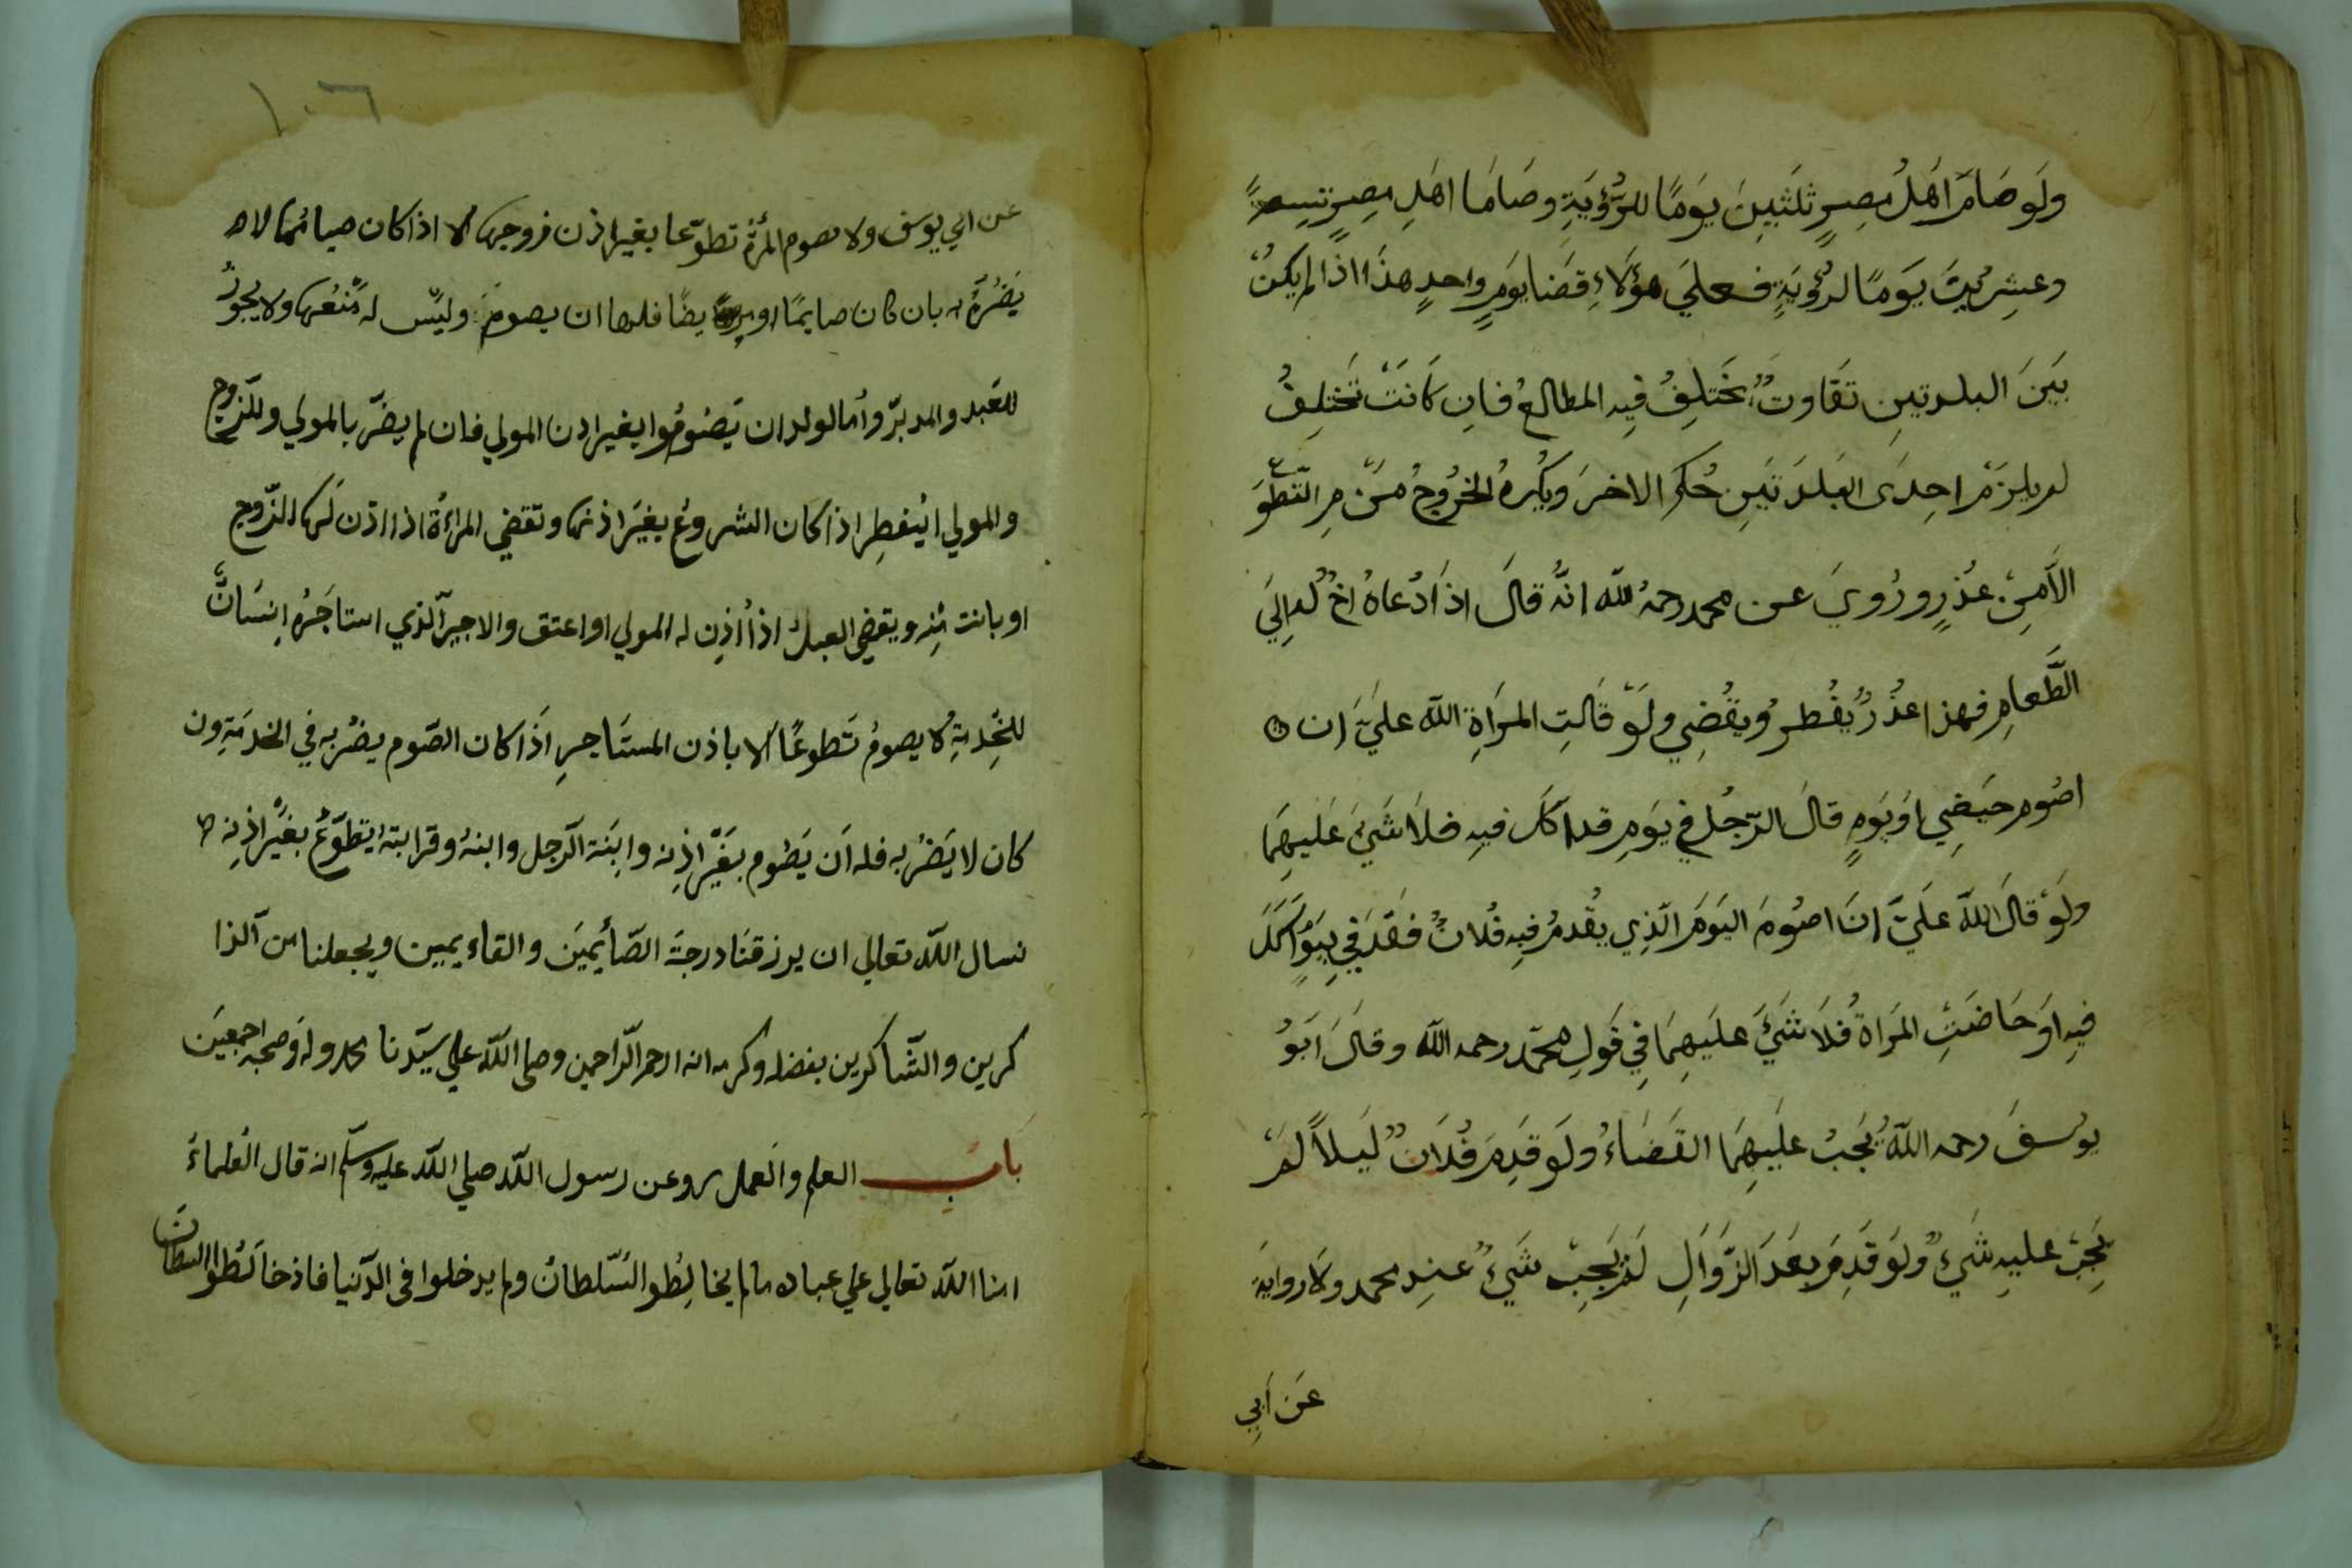 ولَو صَامَ اَهلُ مِصرٍ ثَلثينَ يَومًا للرُّؤيَةِ وصَامَا اهَلِ مِصرٍ تسعةً
وعشِريَتَ يَومًا لرُؤيَةٍ فعلَي هؤلَاءِ قضَنا يَومٍ واحدٍ هذَا اذا لم يكنْ
بَينَ البلدتينِ تَفَاوتٌ يَختلِفُ فِيه المطالعُ فانِ كَانَتْ تَختلِفُ
لم يلزَمْ احِدَى البَلدَتَينِ حُكم الاخرَ ويُكرهُ الخرُوجُ مِنَ التّطَوّع
الاَّ مِنْ عُذرٍ ورُويَ عن محمد رحمهُ الله انَّهُ قالَ اذَا دُعَاهُ اخٌ لُه اِلَي
الطَّعامِ فهذا عذُرٌ يُفُطرُ ويقُضِي ولَو قَالتِ المرَاةِ الله عليَّ ان
اصُوم حيَضِي اوَ يَومٍ قالَ الرّجُل في يَومِ قد اكَلَ فيهِ فلاَ شَيَ عَليهِمَا
ولَو قالَ الله علَيَّ انَ اصوُمَ اليَومَ الّذِي يقُدمُ فيهِ فُلانٌ فقَدَ في يَومٍ اَكَلَ
فيهِ اوَ حَاضَتِ المَراةُ فلاَ شَئَ علَيهِمَا فِي قَولِ محمّد رحمه الله وقالَ ابَوُ
يوُسفَ رحمه اللهُ يُجَبُ عليَهِمَا القَضَاءُ ولَو قَدِمَ فُلاَنٌ لَيلاً لمَ
يَجِبْ عليهِ شَيءٌ ولَو قَدِمَ بعَدَ الزّوَالِ لَم يَجِبْ شَيءٌ عندِ محمد ولا روايةَ
عَن اَبِي
١٠٦
عن ابي يوسَف ولا تصوم المرأة تطوّعا بغير اذن زوجها الا اذا كان صيامُها لا
يَضُرّه بان كان صايمًا او مريضًا فلها ان يصومَ وليَس له مَنعُها ولا يجوزُ
للعَبد والمدبرّ وأما لولد ان يَصُومُوا بغير اذن المولي فان لم يضرّ بالمولي وللزوج
والمولي ان يُفطِر اذا كان الشروعُ بغيَر اذنها وتقضي المرأة اذا اذن لَها الزّوج
او بانت مِنه ويقضي العبدُ اذا أذِن له المولي او اعتق والاجير الّذي استاجَرُه انسَانٌ
للخِدمةِ لا يصومُ تَطوعًا الا باذن المستَاجِرِ اذَا كان الصّوم يضُرّ به في الخدمَةِ ون
كان لا يَضُرّ به فله اَن يَصُوم بغَيرّ اذِنه وابنَة الرّجل وابنهُ وقرابتهُ يتطوّعُ بغيَر اذِنه
نسال الله تعالي ان يرزقنَا درجةَ الصّأيمِيَن والقاءيمين ويجعلنا من الذا
كرين والشّاكرين بفضله وكرمه انه ارحم الرّاحمين وصلى الله علي سيّدنا محمد وله وَصحبه اجمعيَن
بَاب العلم والعَمل روعن رسول الله صلي الله عليه وسلّم انه قال العُلماءُ
امنا الله تعالي علي عباده ما لم يخالِطُو السُّلطانُ ولم يدخلوا فى الدّنيا فاذ خالَطُوا السلطَانَ